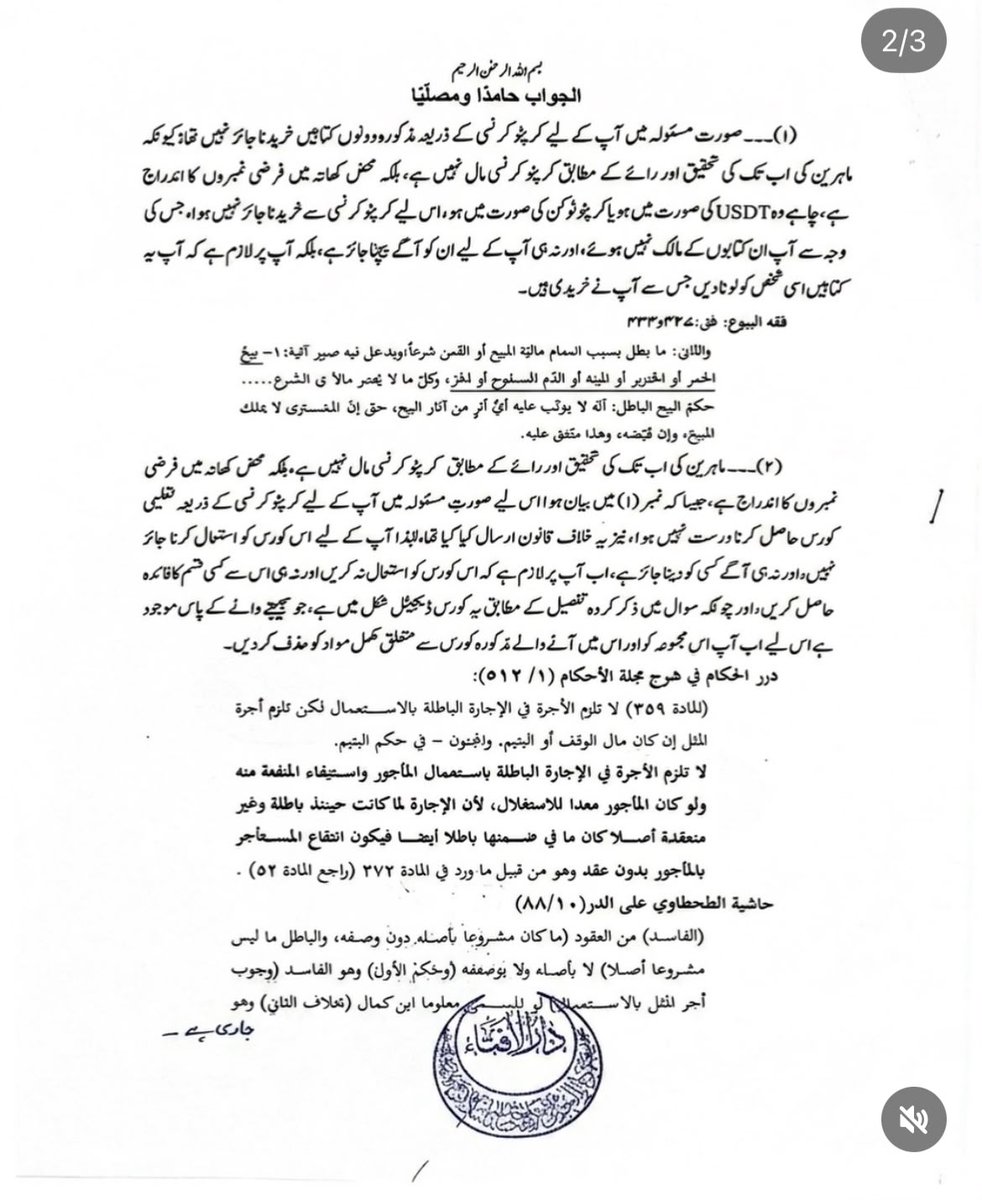 2/3
بسم اللہ الرحمن الرحیم
الجواب حامدًا ومصلّيًا
(۱)۔۔۔ صورت مسئولہ میں آپ کے لیے کرپٹو کرنسی کے ذریعہ مذکورہ دونوں کتابیں خریدنا جائز نہیں تھا؛ کیونکہ
ماہرین کی اب تک کی تحقیق اور رائے کے مطابق کرپٹو کرنسی مال نہیں ہے، بلکہ محض کھاتہ میں فرضی نمبروں کا اندراج
ہے، چاہے وہ USDT کی صورت میں ہو یا کرپٹو ٹوکن کی صورت میں ہو، اس لیے کرپٹو کرنسی سے خریدنا جائز نہیں ہوا، جس کی
وجہ سے آپ ان کتابوں کے مالک نہیں ہوئے، اور نہ ہی آپ کے لیے ان کو آگے بیچنا جائز ہے، بلکہ آپ پر لازم ہے کہ آپ یہ
کتابیں اسی شخص کو لوٹا دیں جس سے آپ نے خریدی ہیں۔
فقه البيوع: فق: ۴۲۷و۴۳۳
والثاني: ما بطل بسبب انعدام مالية المبيع أو الثمن شرعاً؛ ويدخل فيه صور آتية: ۱- بيع
الخمر أو الخنزير أو الميتة أو الدّم المسفوح أو الحرّ، وكلّ ما لا يعتبر مالا في الشرع.....
حكم البيع الباطل: أنّه لا يترتّب عليه أيُّ أثرٍ من آثار البيع، حتى إنّ المشتری لا يملك
المبيع، وإن قبّضه، وهذا متّفق عليه.
(۲)۔۔۔ ماہرین کی اب تک کی تحقیق اور رائے کے مطابق کرپٹو کرنسی مال نہیں ہے، بلکہ محض کھاتہ میں فرضی
نمبروں کا اندراج ہے، جیسا کہ نمبر (۱) میں بیان ہوا اس لیے صورتِ مسئولہ میں آپ کے لیے کرپٹو کرنسی کے ذریعہ تعلیمی
کورس حاصل کرنا درست نہیں ہوا، نیز یہ خلاف قانون ارسال کیا گیا تھا، لہٰذا آپ کے لیے اس کورس کو استعمال کرنا جائز
نہیں، اور نہ ہی آگے کسی کو دینا جائز ہے، اب آپ پر لازم ہے کہ اس کورس کو استعمال نہ کریں اور نہ ہی اس سے کسی قسم کا فائدہ
حاصل کریں، اور چونکہ سوال میں ذکر کردہ تفصیل کے مطابق یہ کورس ڈیجیٹل شکل میں ہے، جو بھیجنے والے کے پاس موجود
ہے اس لیے اب آپ اس مجموعہ کو اور اس میں آنے والے مذکورہ کورس سے متعلق مکمل مواد کو حذف کر دیں۔
درر الحكام في شرح مجلة الأحكام (۱/ ۵۱۲):
(المادة ۳۵۹) لا تلزم الأجرة في الإجارة الباطلة بالاستعمال لكن تلزم أجرة
المثل إن كان مال الوقف أو اليتيم. والمجنون – في حكم اليتيم.
لا تلزم الأجرة في الإجارة الباطلة باستعمال المأجور واستيفاء المنفعة منه
ولو كان المأجور معدا للاستغلال، لأن الإجارة لما كانت حينئذ باطلة وغير
منعقدة أصلا كان ما في ضمنها باطلا أيضا فيكون انتفاع المستأجر
بالمأجور بدون عقد وهو من قبيل ما ورد في المادة ۳۷۲ (راجع المادة ۵۲) .
حاشية الطحطاوي على الدر(۸۸/۱۰)
(الفاسد) من العقود (ما كان مشروعا بأصله دون وصفه، والباطل ما ليس
مشروعا أصلا) لا بأصله ولا بوصفه (وحكم الأول) وهو الفاسد (وجوب
أجر المثل بالاستعمال) لو المسمى معلوما ابن كمال (بخلاف الثاني) وهو
جاری ہے ۔
دار الافتاء